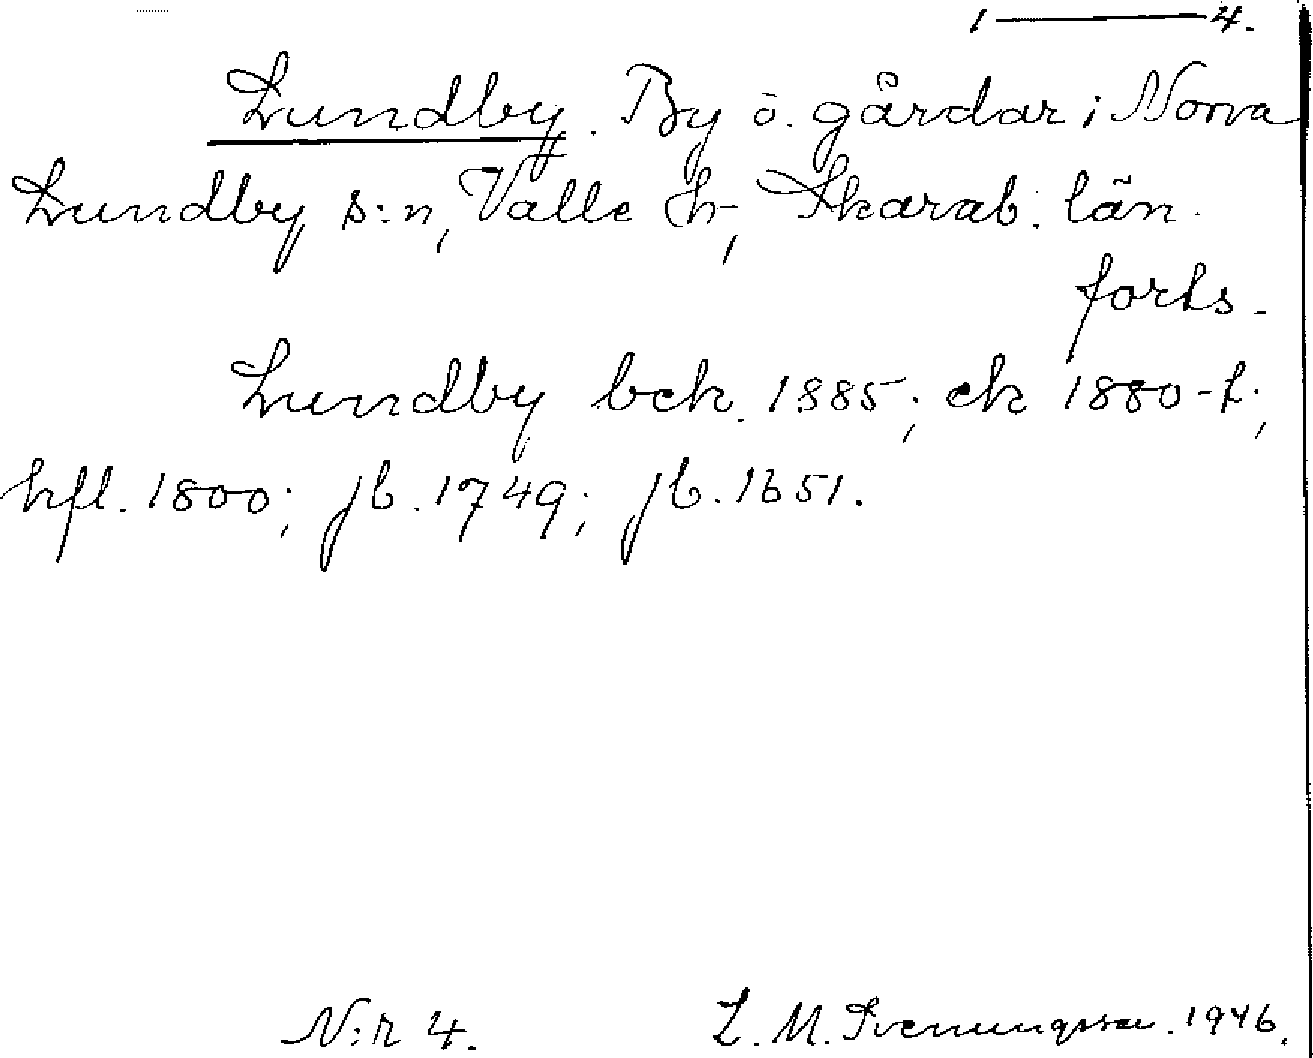 1 — 4.
Lundby. By o. gårdar i Norra
Lundby s:n, Valle h, Skarab. län.
forts.
Lundby bek. 1885; ek 1880-t.;
hfl. 1800; jb. 1749; jb. 1651.
N:r 4. L. M. Svenungsson. 1946.